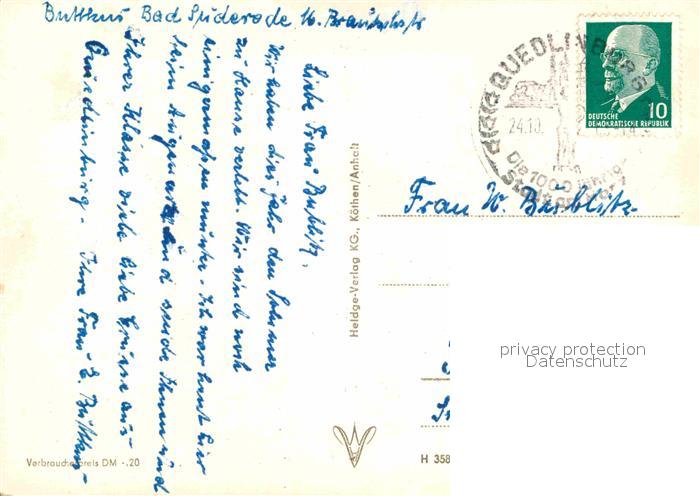 Buttkus Bad Suderode M. Brautzhstr
Liebe Frau Büblitz,
Wir haben dies Jahr den Sommer
zu Hause verlebt. Wir sind noch
einigermaßen munter. Ich war heut hier
beim Augenarzt und sende Ihnen und
Ihrer Klasse viele liebe Grüsse aus
Quedlinburg. Ihre Frau E. Buttkus-
Verbraucherpreis DM -.20
Heldge-Verlag KG., Köthen/Anhalt
QUEDLINBURG
24.10.
Die 1000 jährige
DEUTSCHE
DEMOKRATISCHE REPUBLIK
10
Frau W. Büblitz
privacy protection
Datenschutz
H 358